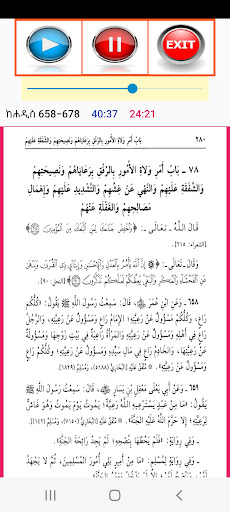 EXIT
ከሐዲስ 658-678 40:37 24:21
٢٨٠ بَابُ أَمْرِ وُلَاةِ الْأُمُورِ بِالرِّفْقِ بِرَعَايَاهُمْ وَنَصِيحَتِهِمْ وَالشَّفَقَةِ عَلَيْهِمْ
٧٨ - بَابُ أَمْرِ وُلَاةِ الْأُمُورِ بِالرِّفْقِ بِرَعَايَاهُمْ وَنَصِيحَتِهِمْ
وَالشَّفَقَةِ عَلَيْهِمْ وَالنَّهْيِ عَنْ غِشِّهِمْ وَالتَّشْدِيدِ عَلَيْهِمْ وَإِهْمَالِ
مَصَالِحِهِمْ وَالْغَفْلَةِ عَنْهُمْ
قَالَ اللَّهُ تَعَالَى: ﴿وَاخْفِضْ جَنَاحَكَ لِمَنِ اتَّبَعَكَ مِنَ الْمُؤْمِنِينَ﴾
[الشعراء: ٢١٥].
وَقَالَ تَعَالَى: ﴿إِنَّ اللَّهَ يَأْمُرُ بِالْعَدْلِ وَالْإِحْسَانِ وَإِيتَاءِ ذِي الْقُرْبَى وَيَنْهَى
عَنِ الْفَحْشَاءِ وَالْمُنْكَرِ وَالْبَغْيِ يَعِظُكُمْ لَعَلَّكُمْ تَذَكَّرُونَ﴾ [النحل: ٩٠].
٦٥٨ - وَعَنِ ابْنِ عُمَرَ قَالَ: سَمِعْتُ رَسُولَ اللَّهِ ﷺ يَقُولُ: «كُلُّكُمْ
رَاعٍ، وَكُلُّكُمْ مَسْؤُولٌ عَنْ رَعِيَّتِهِ: الْإِمَامُ رَاعٍ وَمَسْؤُولٌ عَنْ رَعِيَّتِهِ، وَالرَّجُلُ
رَاعٍ فِي أَهْلِهِ وَمَسْؤُولٌ عَنْ رَعِيَّتِهِ، وَالْمَرْأَةُ رَاعِيَةٌ فِي بَيْتِ زَوْجِهَا وَمَسْؤُولَةٌ
عَنْ رَعِيَّتِهَا، وَالْخَادِمُ رَاعٍ فِي مَالِ سَيِّدِهِ وَمَسْؤُولٌ عَنْ رَعِيَّتِهِ، وَكُلُّكُمْ رَاعٍ
وَمَسْؤُولٌ عَنْ رَعِيَّتِهِ» مُتَّفَقٌ عَلَيْهِ
٦٥٩ - وَعَنْ أَبِي يَعْلَى مَعْقِلِ بْنِ يَسَارٍ قَالَ: سَمِعْتُ رَسُولَ اللَّهِ ﷺ
يَقُولُ: «مَا مِنْ عَبْدٍ يَسْتَرْعِيهِ اللَّهُ رَعِيَّةً، يَمُوتُ يَوْمَ يَمُوتُ وَهُوَ غَاشٌّ
لِرَعِيَّتِهِ؛ إِلَّا حَرَّمَ اللَّهُ عَلَيْهِ الْجَنَّةَ» مُتَّفَقٌ عَلَيْهِ
وَفِي رِوَايَةٍ: «فَلَمْ يَحُطْهَا بِنُصْحِهِ لَمْ يَجِدْ رَائِحَةَ الْجَنَّةِ».
وَفِي رِوَايَةٍ لِمُسْلِمٍ: «مَا مِنْ أَمِيرٍ يَلِي أُمُورَ الْمُسْلِمِينَ، ثُمَّ لَا يَجْهَدُ